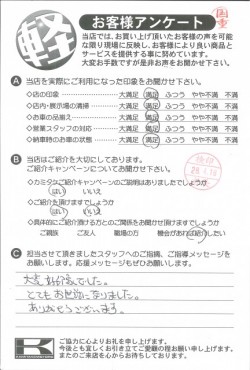 軽
お客様アンケート
当店では、お買い上げ頂いたお客様の声を可能
な限り現場に反映し、お客様により良い商品と
サービスを提供する事に努めています。
大変お手数ですが是非お声をお聞かせ下さい。
A 当店を実際にご利用になった印象をお聞かせ下さい。
◇店の印象 大満足 満足 ふつう やや不満 不満
◇店内・展示場の清掃 大満足 満足 ふつう やや不満 不満
◇お車の品揃え 大満足 満足 ふつう やや不満 不満
◇営業スタッフの対応 大満足 満足 ふつう やや不満 不満
◇納車時のお車の状態 大満足 満足 ふつう やや不満 不満
B 当店はご紹介を大切にしております。
ご紹介キャンペーンについてお聞かせ下さい。
◇カミタケご紹介キャンペーンのご説明はありましたでしょうか
はい いいえ
◇ご紹介を頂けますでしょうか
はい いいえ
◇具体的にご紹介頂ける方とのご関係をお聞かせ頂けますでしょうか
ご親族 ご友人 職場の方 機会があれば紹介したい
C 担当させて頂きましたスタッフへのご指摘、ご指導メッセージを
お願いします。応援メッセージもぜひお願いします。
大変お世話でした。
とてもお世話になりました。
ありがとうございます。
K
ご協力に心よりお礼を申し上げます。
今後とも宜しくお引き立てご愛顧の程お願い申し上げます。
またのご来店を心からお待ちしております。